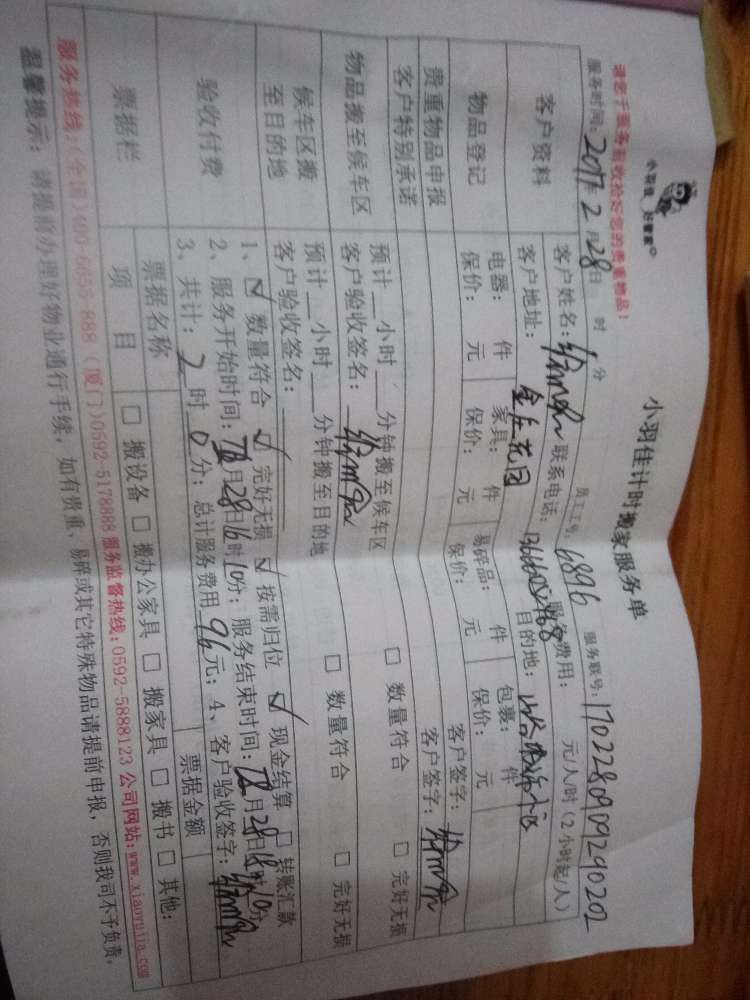 小羽佳 好管家
小羽佳计时搬家服务单
请您于服务前收捡好您的贵重物品！
员工工号：6896 服务联号：1702280909290202
服务时间：2017年2月28日 时 分 服务费用： 元/人时（2小时起/人）
客户资料
客户姓名： 联系电话：
客户地址： 花园 目的地：
物品登记
电器： 件 家具： 件 易碎品： 件 包裹： 件
保价： 元 保价： 元 保价： 元 保价： 元
贵重物品申报 客户签字：
客户特别承诺 客户签字：
物品搬至候车区
预计__小时__分钟搬至候车区
客户验收签名： □ 数量符合 □ 完好无损
候车区搬至目的地
预计__小时__分钟搬至目的地
客户验收签名： □ 数量符合 □ 完好无损
验收付费
1、☑ 数量符合 ☑ 完好无损 ☑ 按需归位 ☑ 现金结算 □ 转账汇款
2、服务开始时间： 月28日16时10分；服务结束时间： 月28日18时10分
3、共计：2时0分；总计服务费用96元；4、客户验收签字：
票据栏
票据名称 票据金额
项目 □ 搬设备 □ 搬办公家具 □ 搬家具 □ 搬书 □ 其他：
服务热线：（全国）400-6655-888（厦门）0592-5178888 服务监督热线：0592-5888123 公司网站：www.xiaoyujia.com
温馨提示：请提前办理好物业通行手续，如有贵重、易碎或其它特殊物品请提前申报，否则我司不予负责。